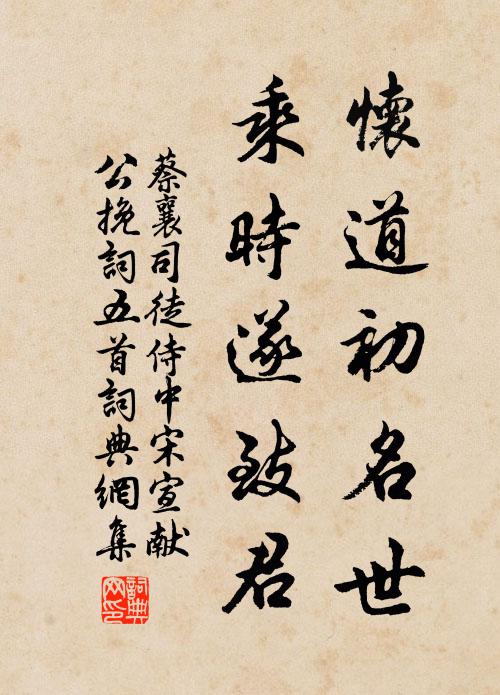 懷道初名世
乘時遂致君
蔡襄司徒侍中宋宣献
公挽詞五首詞典網集
詞典網印